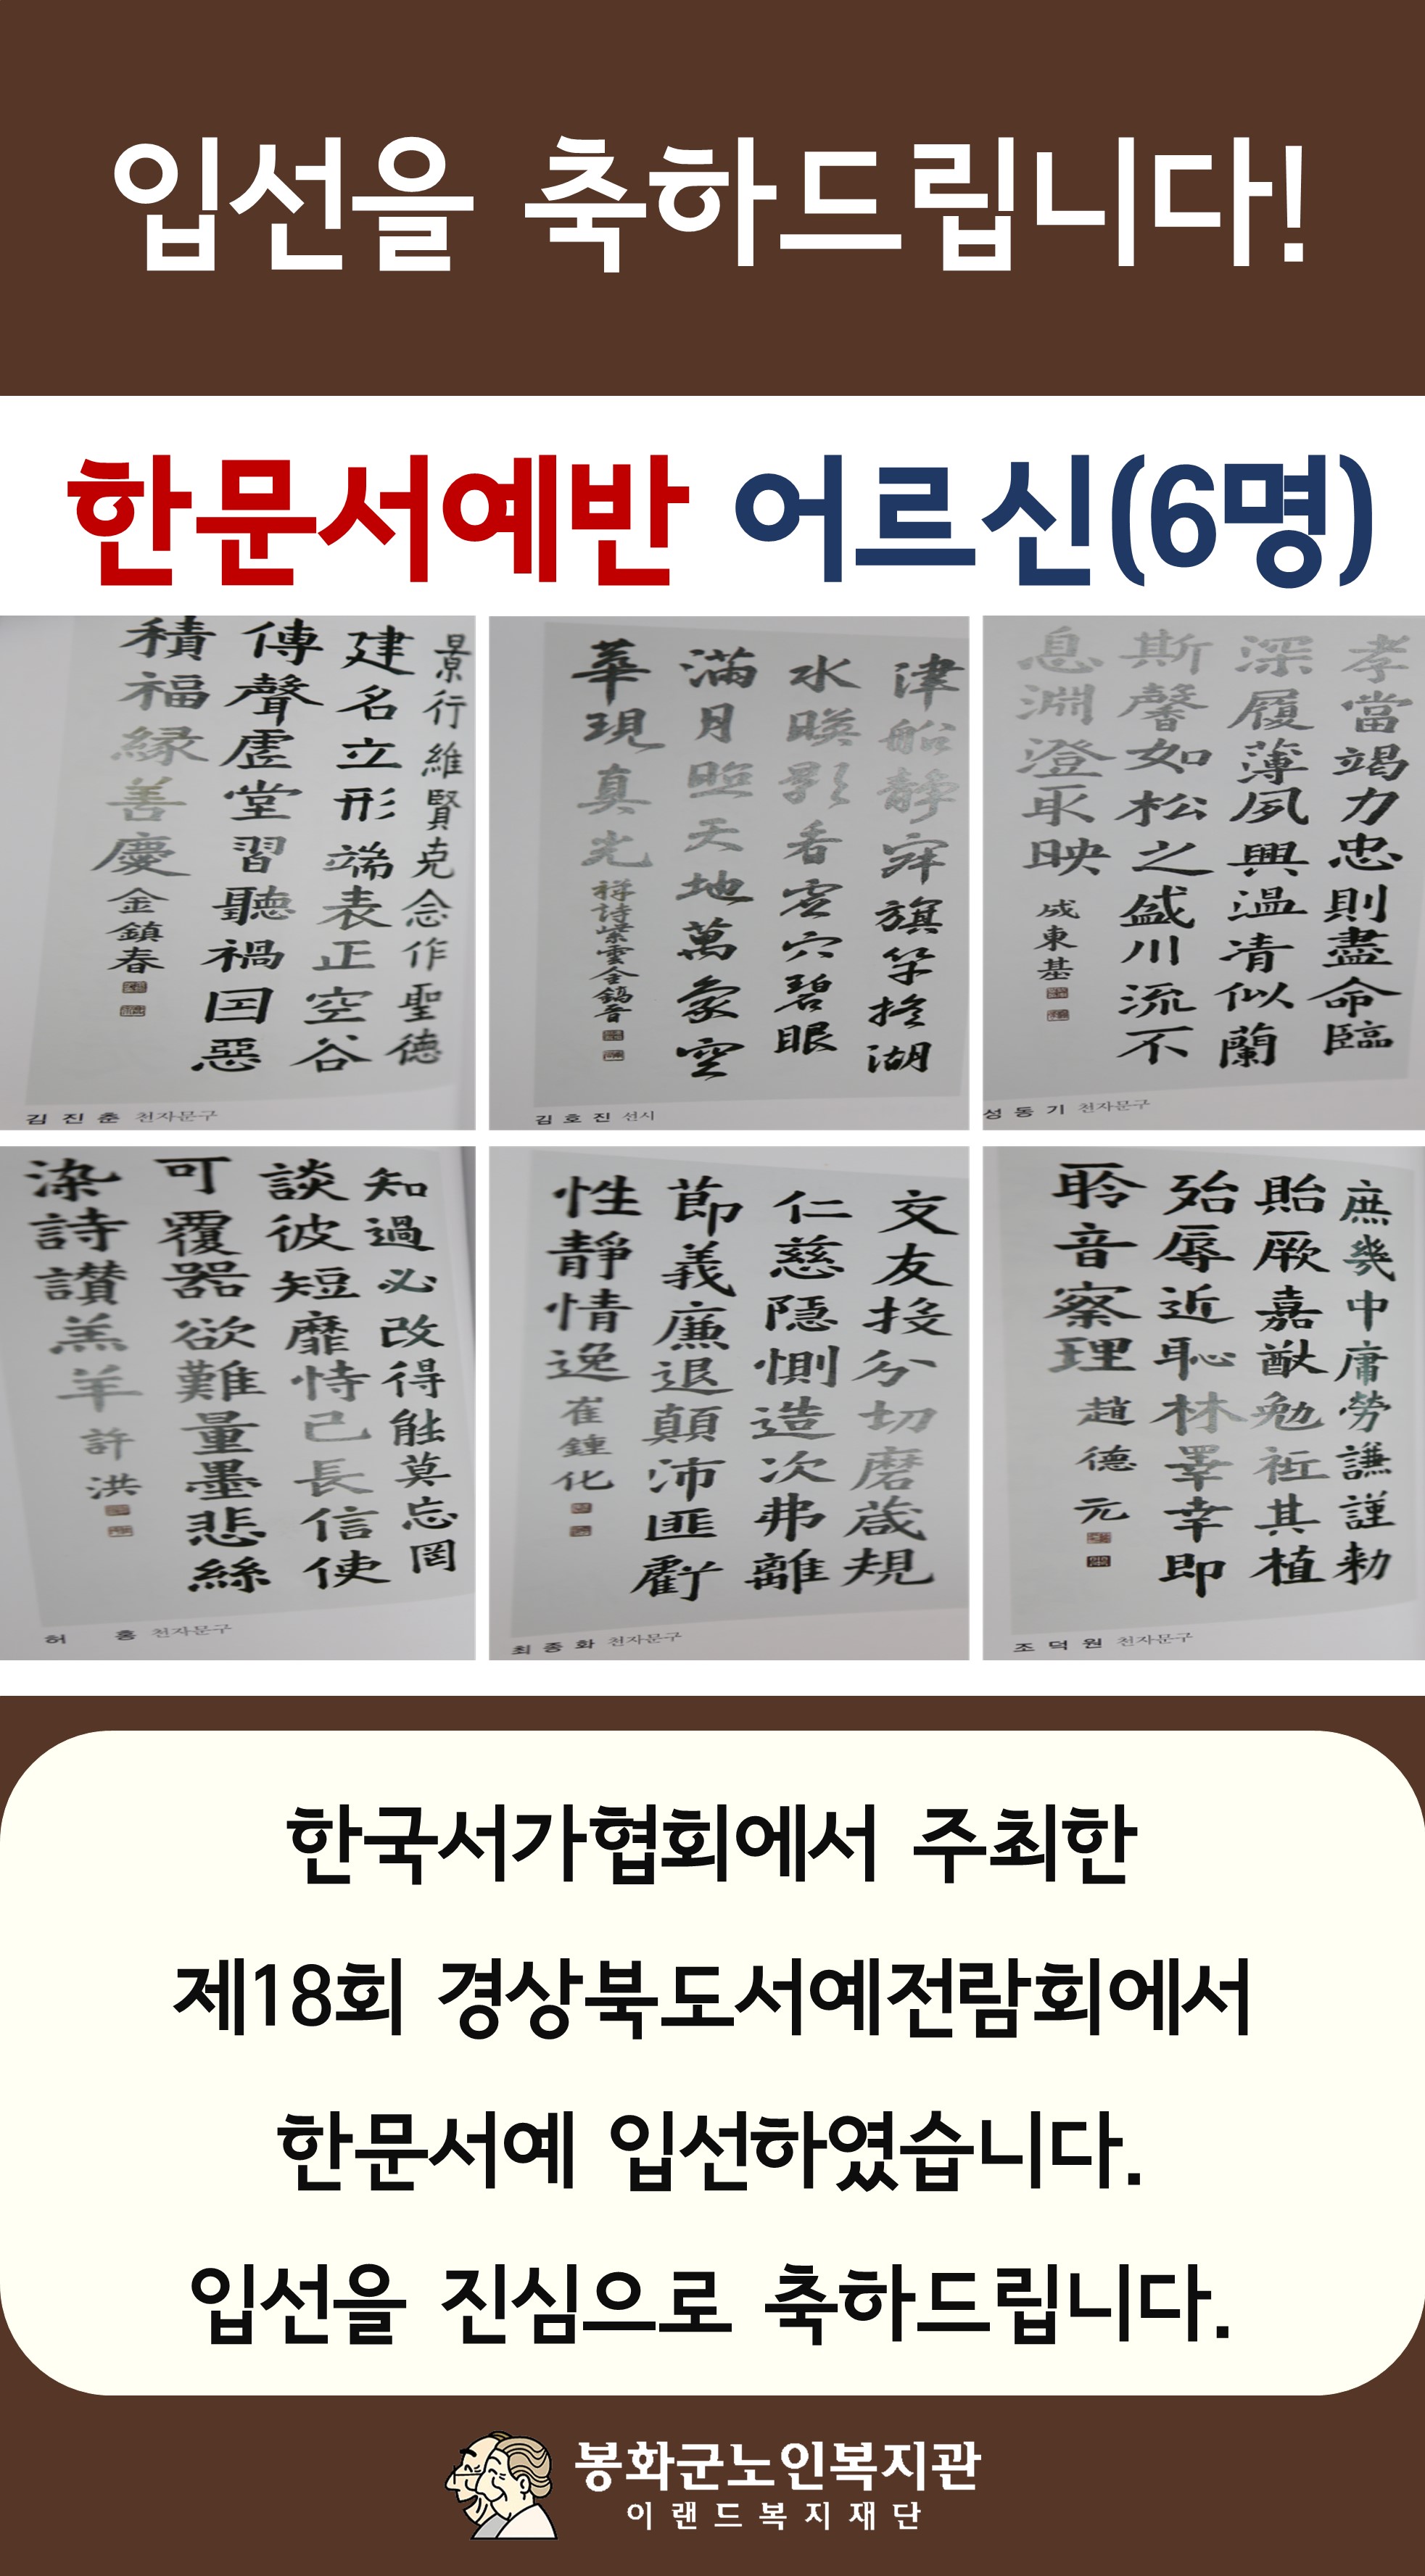 입선을 축하드립니다!
한문서예반 어르신(6명)
景行維賢克念作聖德
建名立形端表正空谷
傳聲虛堂習聽禍因惡
積福緣善慶
金鎭春
김진춘 천자문구
津船靜
旗
湖
水暎影
雲穴碧眼
滿月照天地萬象空
華現真光
김호진 선시
孝當竭力忠則盡命臨
深履薄夙興溫凊似蘭
斯馨如松之盛川流不
息淵澄取映
成東基
성동기 천자문구
知過必改得能莫忘罔
談彼短靡恃己長信使
可覆器欲難量墨悲絲
染詩讚羔羊
許洪
허홍 천자문구
交友投分切磨箴規
仁慈隱惻造次弗離
節義廉退顚沛匪虧
性靜情逸
崔鍾化
최종화 천자문구
庶幾中庸勞謙謹勅
貽厥嘉猷勉祗其植
殆辱近恥林睾幸即
聆音察理
趙德元
조덕원 천자문구
한국서가협회에서 주최한
제18회 경상북도서예전람회에서
한문서예 입선하였습니다.
입선을 진심으로 축하드립니다.
봉화군노인복지관
이랜드복지재단